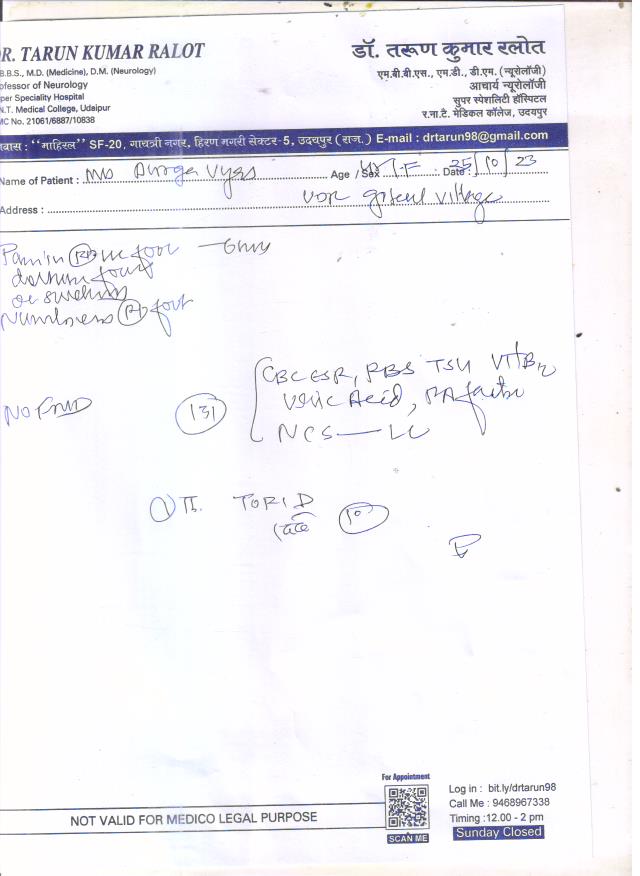 R. TARUN KUMAR RALOT
B.B.S., M.D. (Medicine), D.M. (Neurology)
ofessor of Neurology
per Speciality Hospital
N.T. Medical College, Udaipur
MC No. 21061/6887/10838
डॉ. तरूण कुमार रलोत
एम.बी.बी.एस., एम.डी., डी.एम. (न्यूरोलॉजी)
आचार्य न्यूरोलॉजी
सुपर स्पेशलिटी हॉस्पिटल
र.ना.टै. मेडिकल कॉलेज, उदयपुर
वास : "माहिरल" SF-20, गायत्री नगर, हिरण नगरी सेक्टर-5, उदयपुर (राज.) E-mail : drtarun98@gmail.com
Name of Patient : Durga Vyas Age / Sex F Date : 25/10/23
Address : village
Pain in (R) foot
Numbness (R) foot
CBC ESR, RBS TSH Vit B12
Uric Acid, RA factor
NCS
131
1 T. TORID
10
For Appointment
SCAN ME
Log in : bit.ly/drtarun98
Call Me : 9468967338
Timing :12.00 - 2 pm
Sunday Closed
NOT VALID FOR MEDICO LEGAL PURPOSE